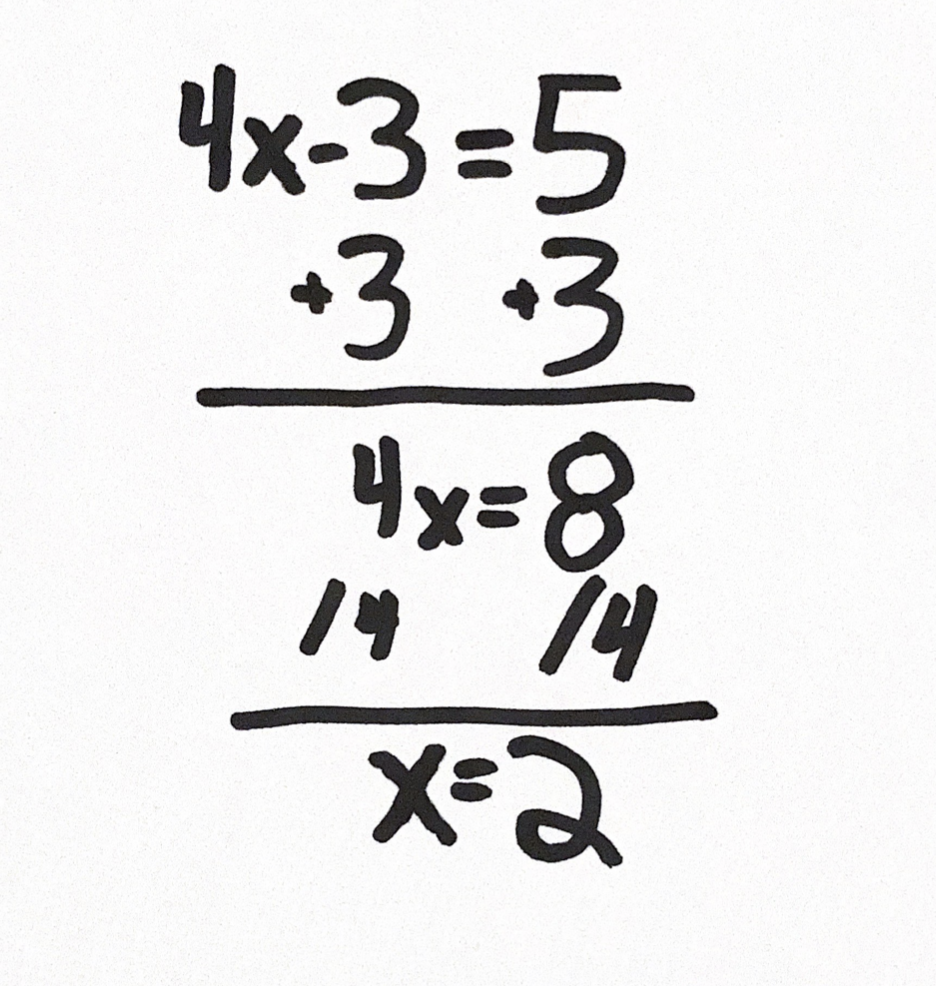 4x-3=5
+3 +3
4x=8
/4 /4
x=2